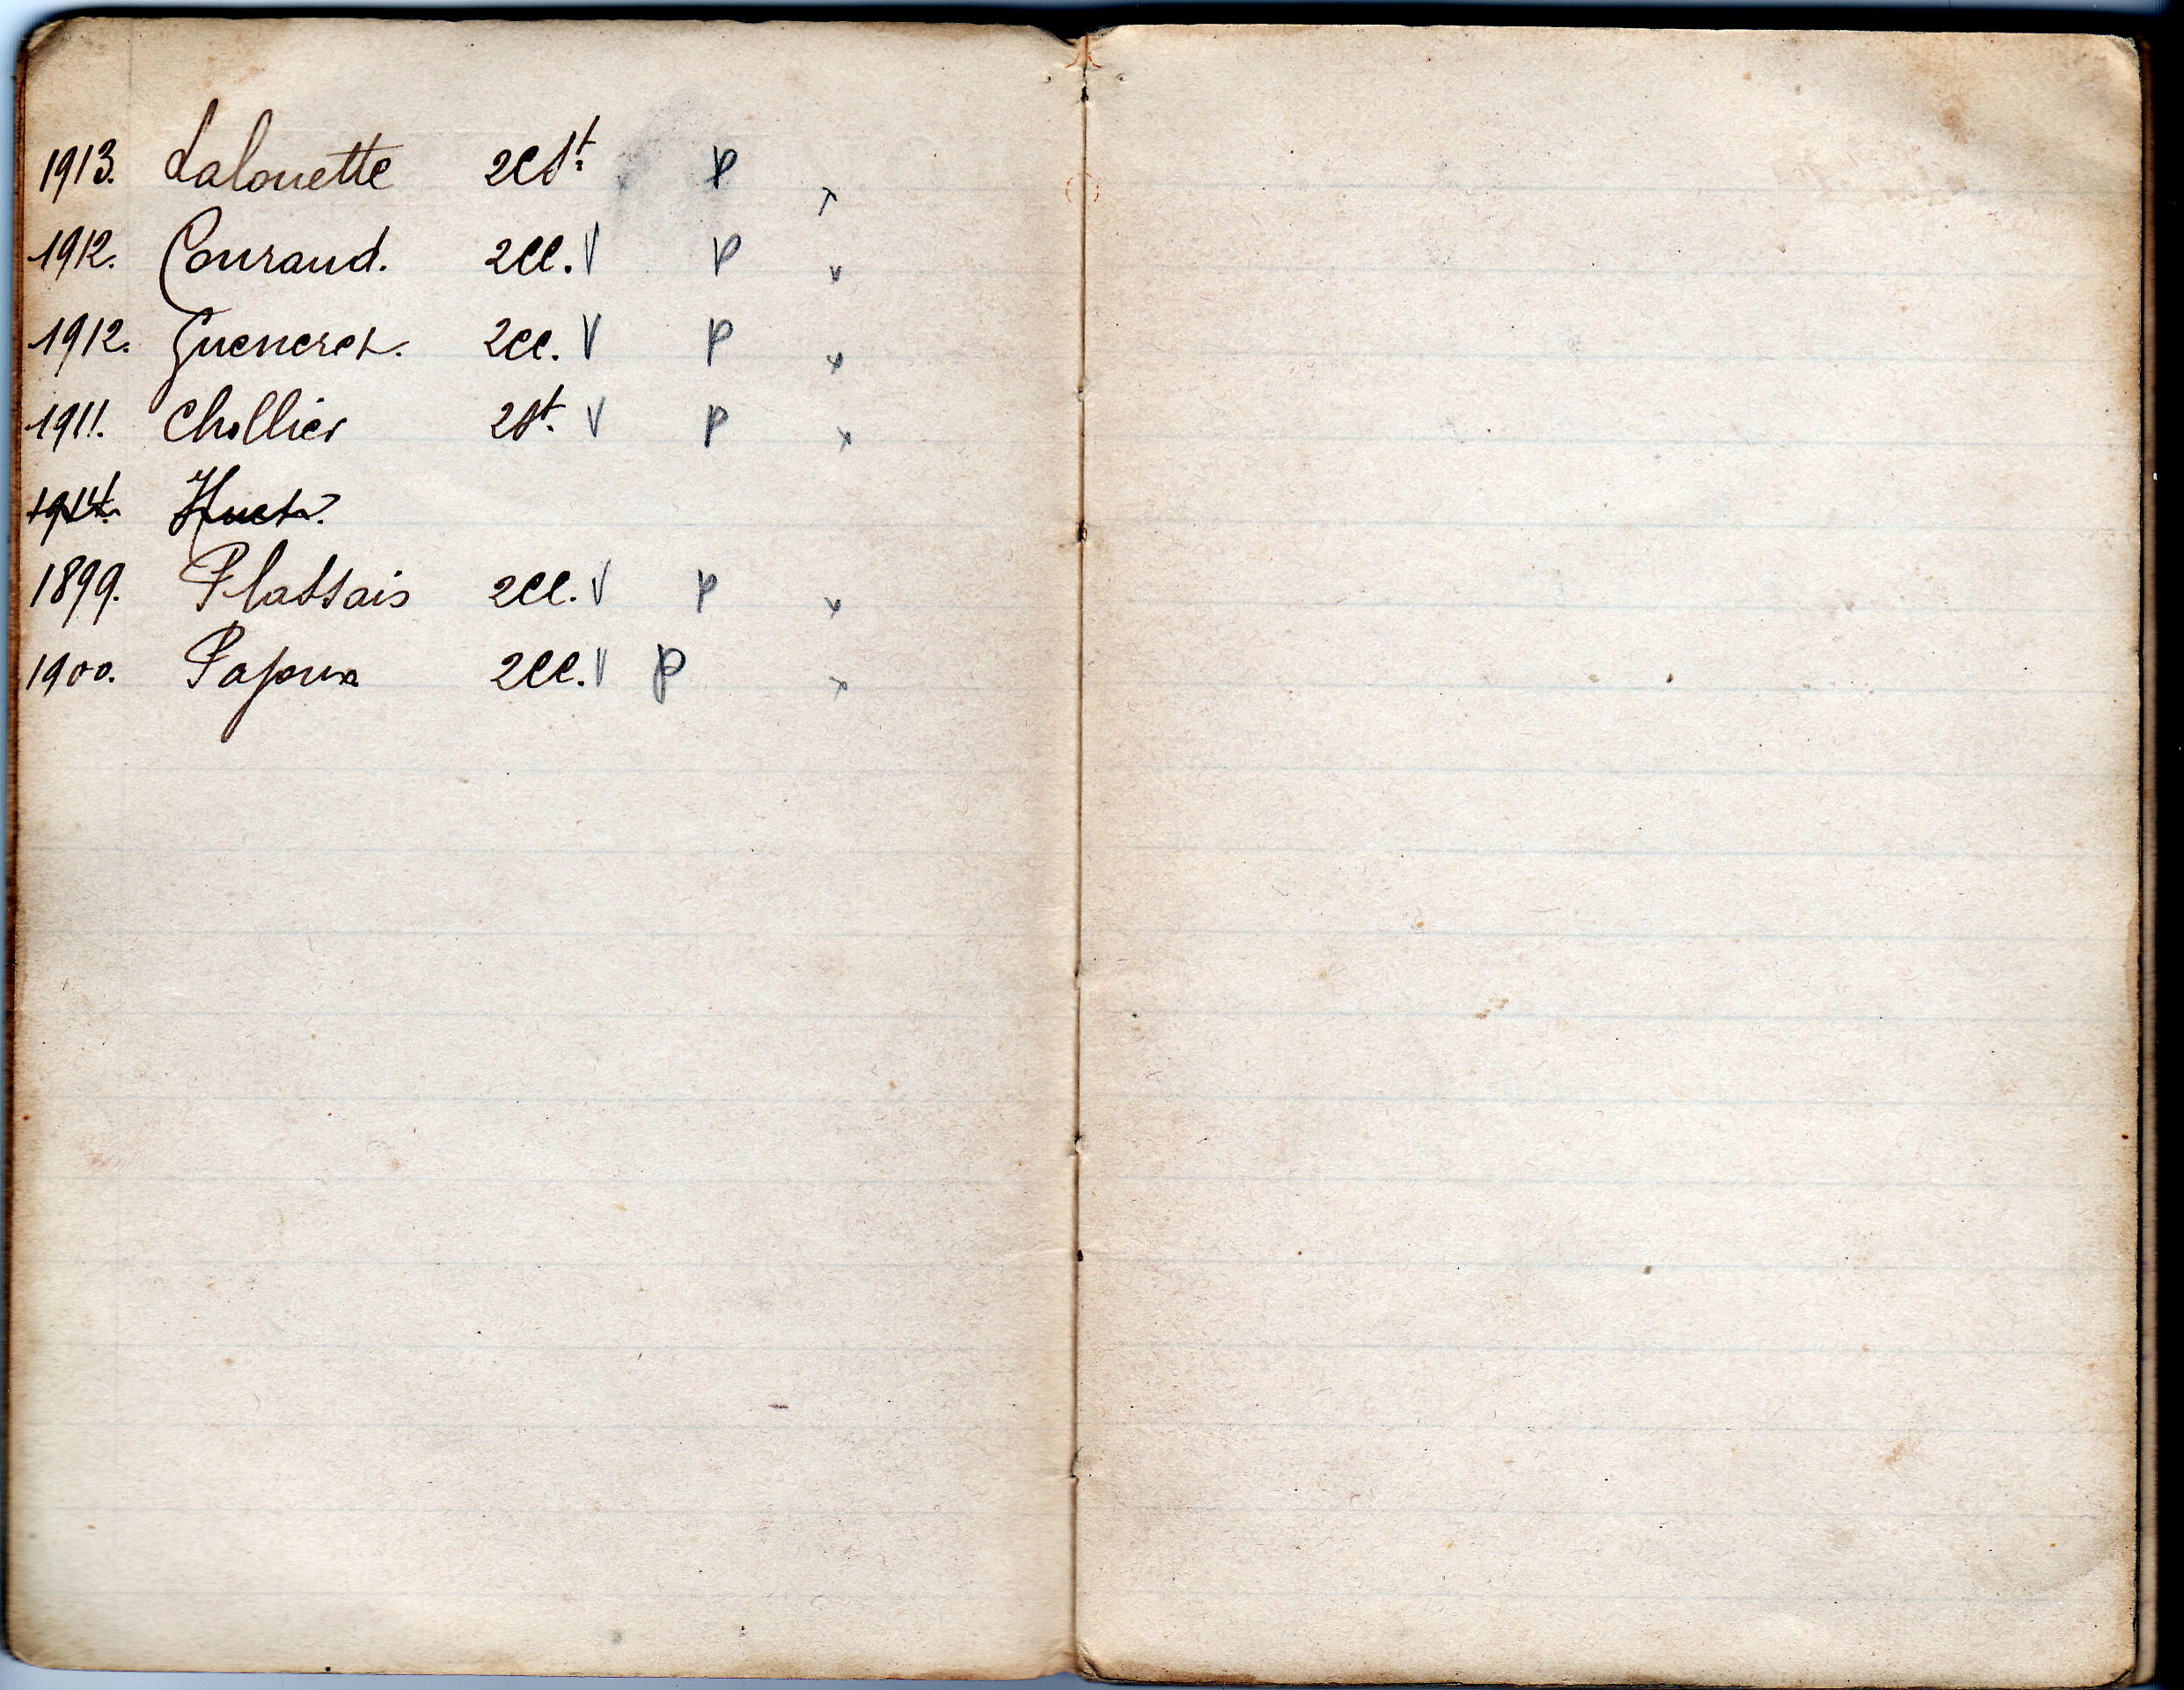 1913. Lalouette 2Cl St p x
1912. Couraud. 2Cl. V p v
1912. Gueneret. 2Cl. V p x
1911. Chollier 2St. V p x
1914. Huet.
1899. Plassais 2Cl. V p x
1900. Pajoux 2Cl. V p x